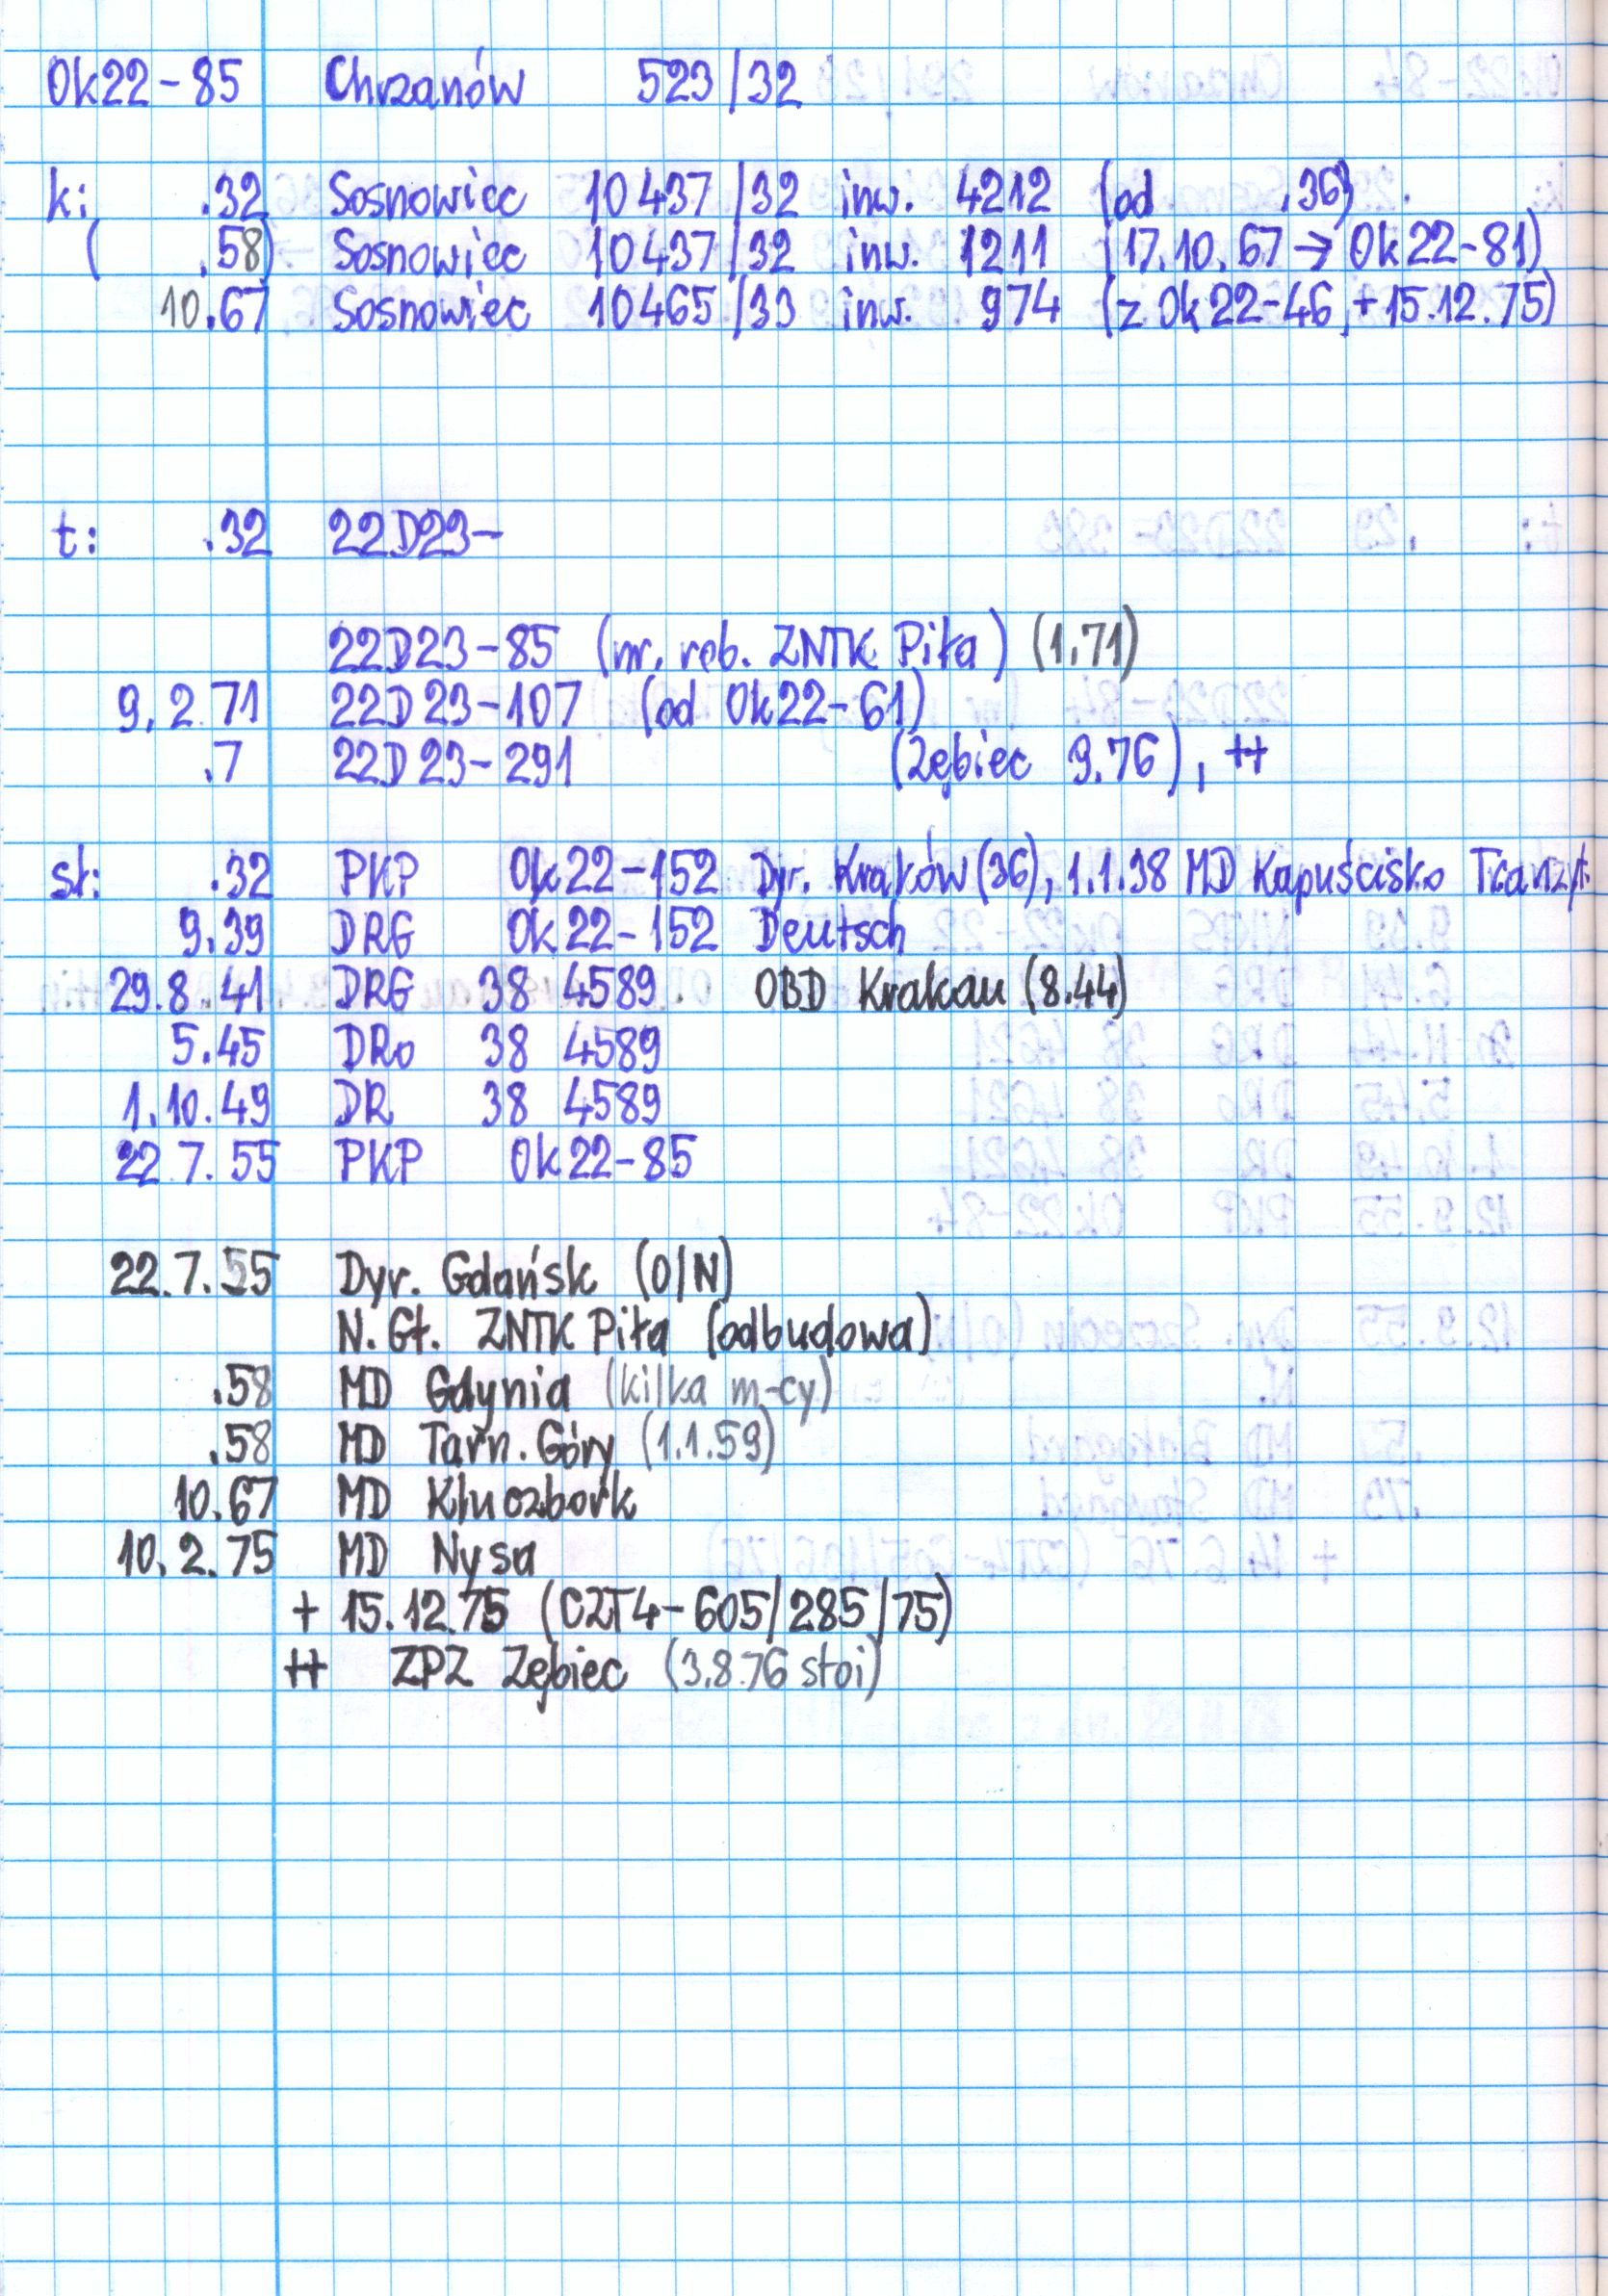 Ok22-85 Chrzanów 523/32
k: .32 Sosnowiec 10437/32 inw. 4212 (od .36)
( .58) Sosnowiec 10437/32 inw. 1211 (17.10.67 → Ok22-81)
10.67 Sosnowiec 10465/33 inw. 974 (z Ok22-46, +15.12.75)
t: .32 22D23-
22D23-85 (nr. rob. ZNTK Piła) (1.71)
9.2.71 22D23-107 (od Ok22-61)
.7 22D23-291 (Zębiec 9.76), ++
st: .32 PKP Ok22-152 Dyr. Kraków (36), 1.1.38 MD Kapuścisko Tranzyt.
9.39 DRG Ok22-152 Deutsch
29.8.41 DRG 38 4589 OBD Krakau (8.44)
5.45 DRo 38 4589
1.10.49 DR 38 4589
22.7.55 PKP Ok22-85
22.7.55 Dyr. Gdańsk (O/N)
N.Gł. ZNTK Piła (odbudowa)
.58 MD Gdynia (kilka m-cy)
.58 MD Tarn. Góry (1.1.59)
10.67 MD Kluczbork
10.2.75 MD Nysa
+ 15.12.75 (CZT4-605/285/75)
++ ZPZ Zębiec (3.8.76 stoi)